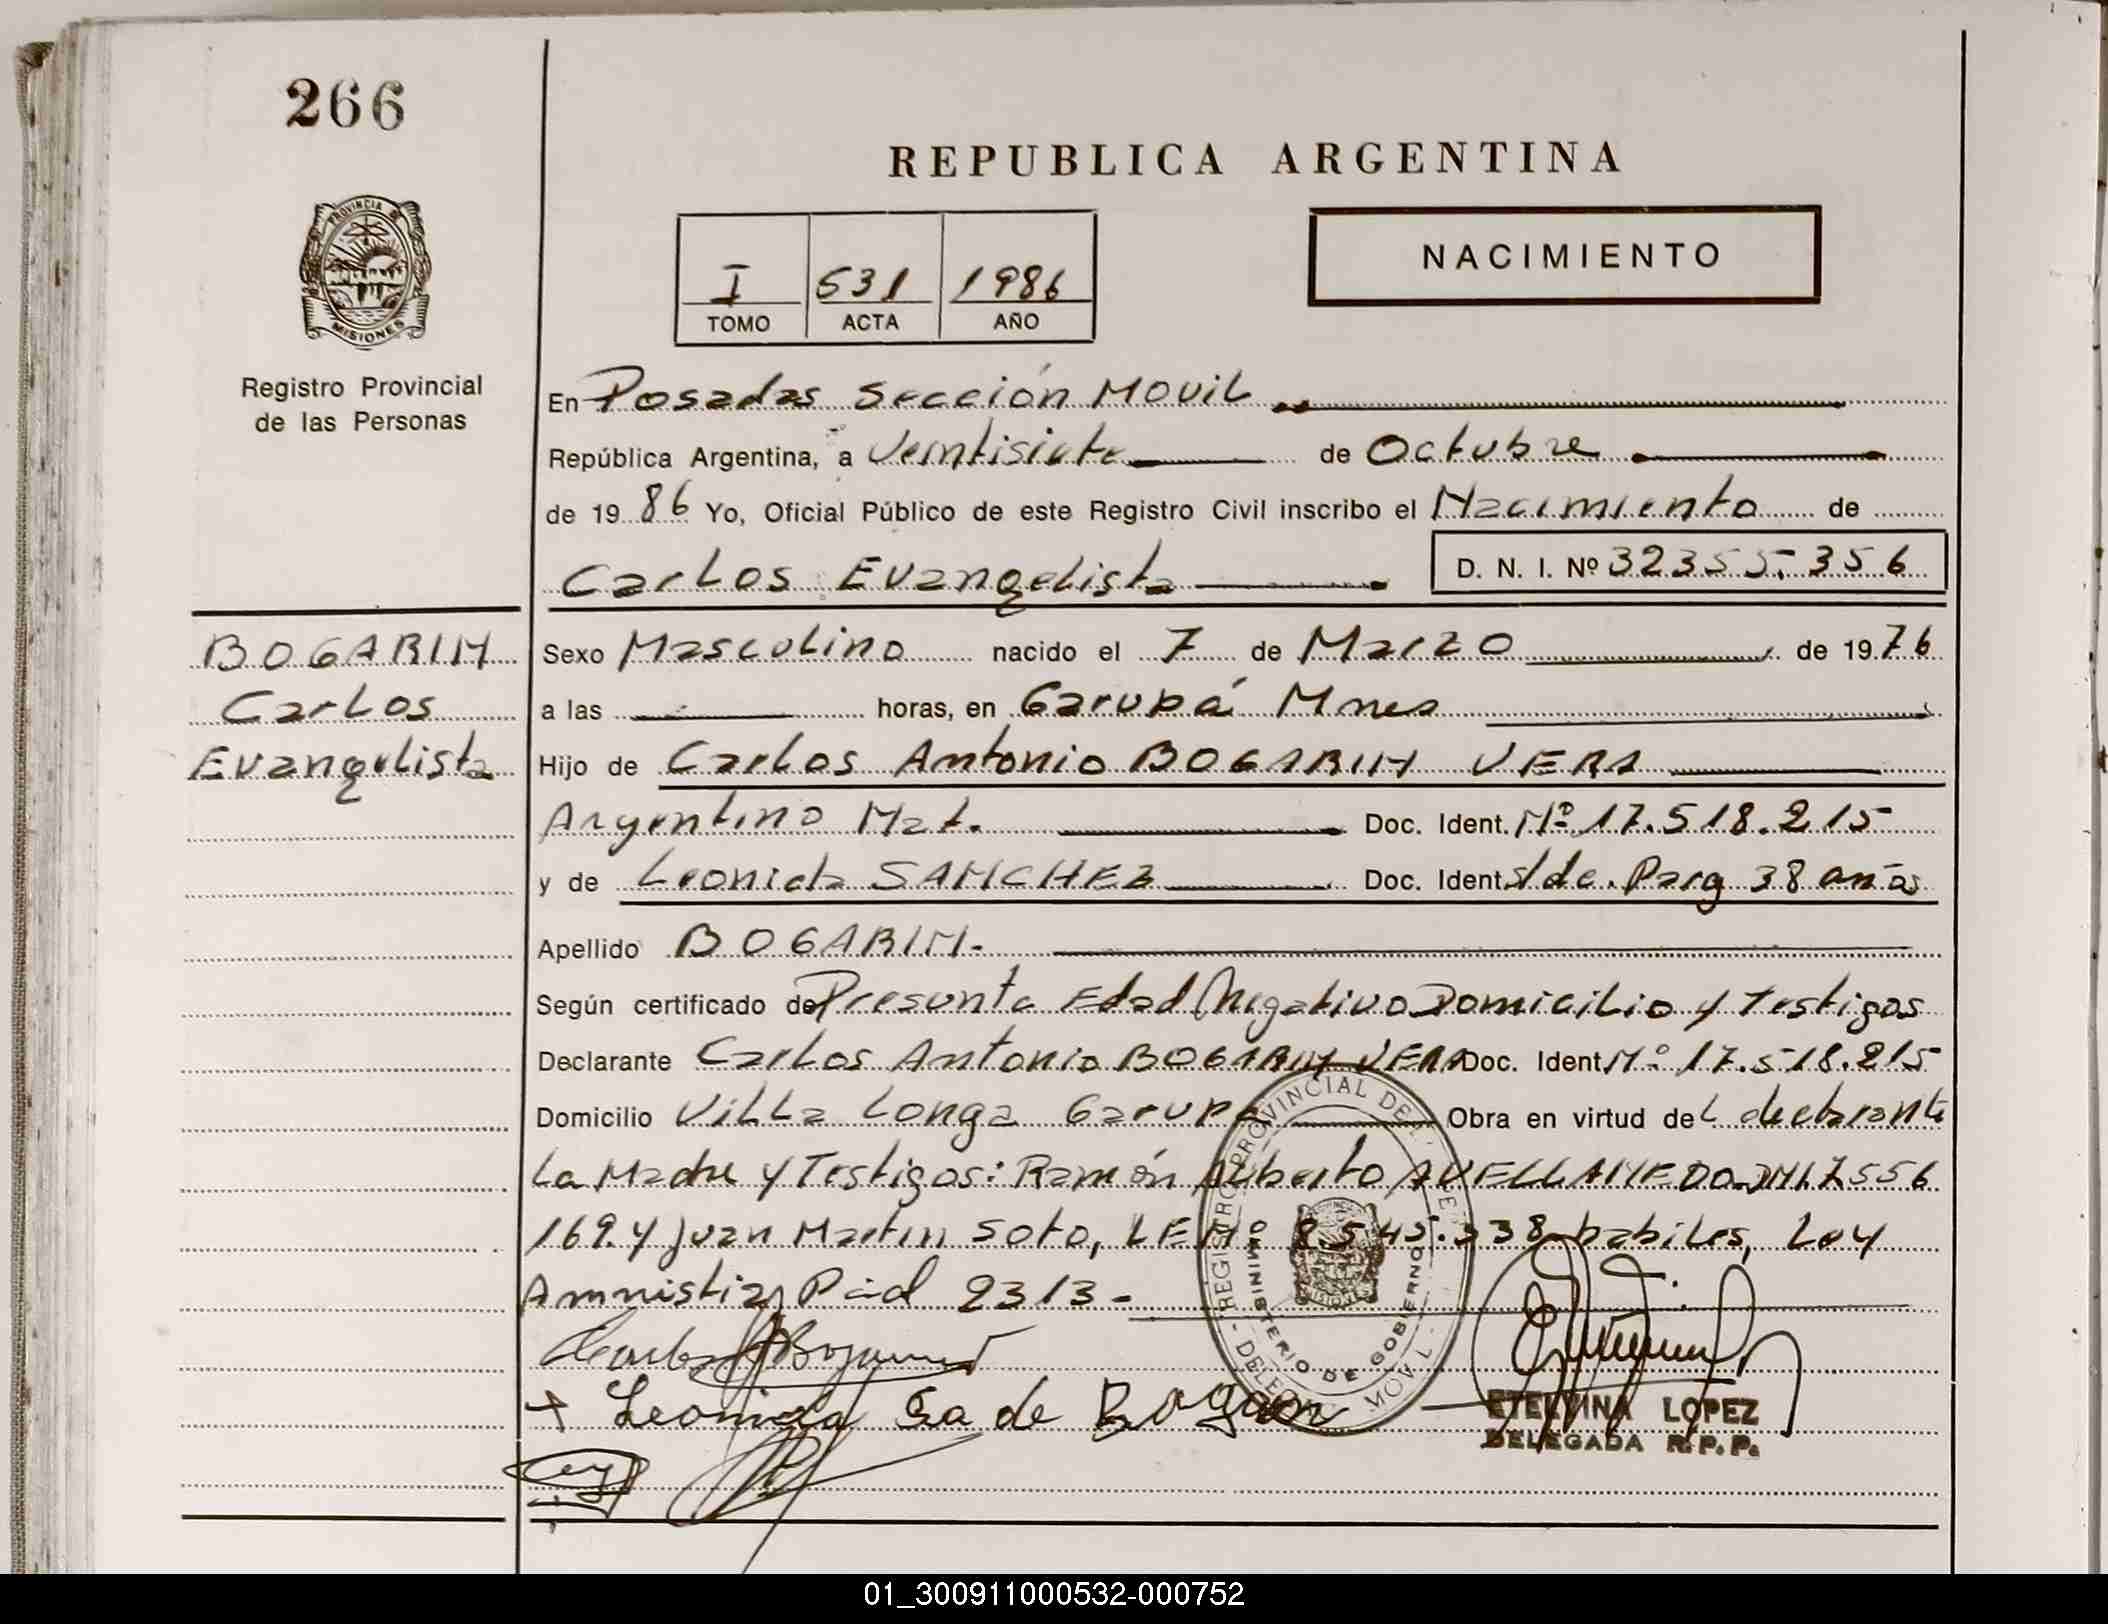 266
REPUBLICA ARGENTINA
PROVINCIA DE
MISIONES
I 531 1986
TOMO ACTA AÑO
NACIMIENTO
Registro Provincial
de las Personas
En Posadas Sección Movil
República Argentina, a Veintisiete de Octubre
de 1986 Yo, Oficial Público de este Registro Civil inscribo el Nacimiento de
Carlos Evangelista D. N. I. Nº 32355.356
BOGARIN
Carlos
Evangelista
Sexo Masculino nacido el 7 de Marzo de 1976
a las horas, en Garupá Mnes
Hijo de Carlos Antonio BOGARIN VERA
Argentino Nat. Doc. Ident. Nº 17.518.215
y de Leonida SANCHEZ Doc. Ident s/de. Parg 38 años
Apellido BOGARIN.
Según certificado de Presunta Edad Negativo Domicilio y Testigos
Declarante Carlos Antonio BOGARIN VERA Doc. Ident Nº 17.518.215
Domicilio Villa Longa Garupa Obra en virtud del declarante
La Madre y Testigos: Ramón Alberto AVELLANEDO DNI 7556
169. y Juan Martin Soto, LE Nº 8.545.338 habiles, Ley
Amnistia Pcial 2313-
REGISTRO PROVINCIAL DE
MINISTERIO DE GOBIERNO
MOVIL
Leonida Sa de
ETELVINA LOPEZ
DELEGADA R. P. P.
01_300911000532-000752